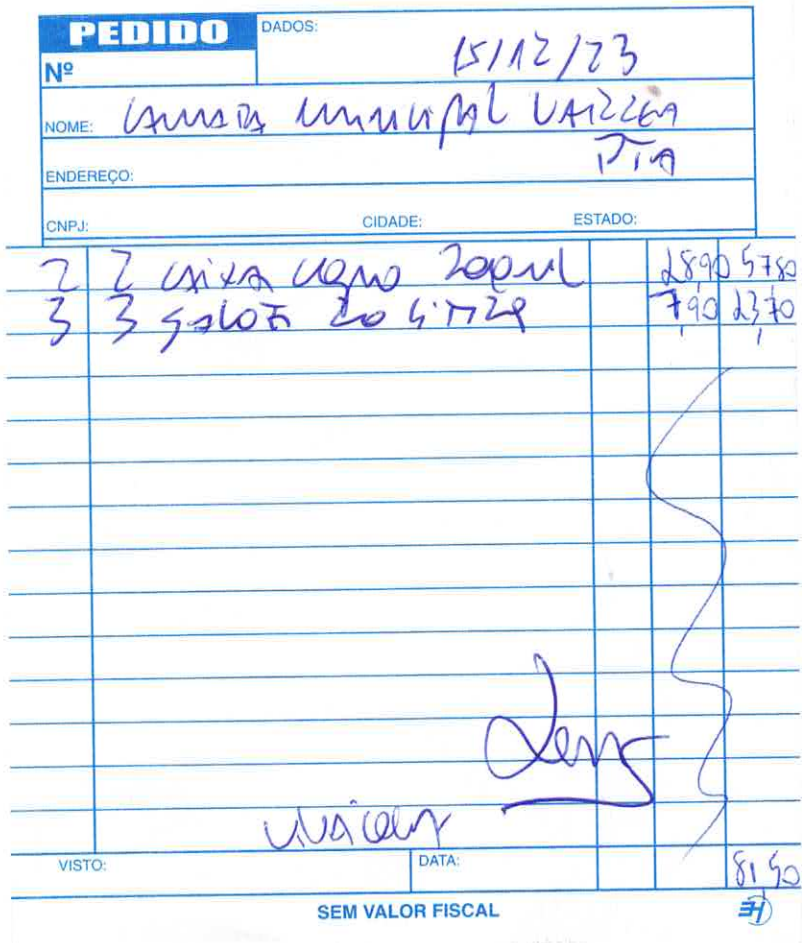 PEDIDO
DADOS:
Nº
15/12/23
NOME: CAMARA MUNICIPAL VARZEA
PTA
ENDEREÇO:
CNPJ: CIDADE: ESTADO:
2 2 CAIXA COPO 200ML 28,90 57,80
3 3 GALOE 20 LITRE 7,90 23,70
VISTO: DATA: 81,50
SEM VALOR FISCAL